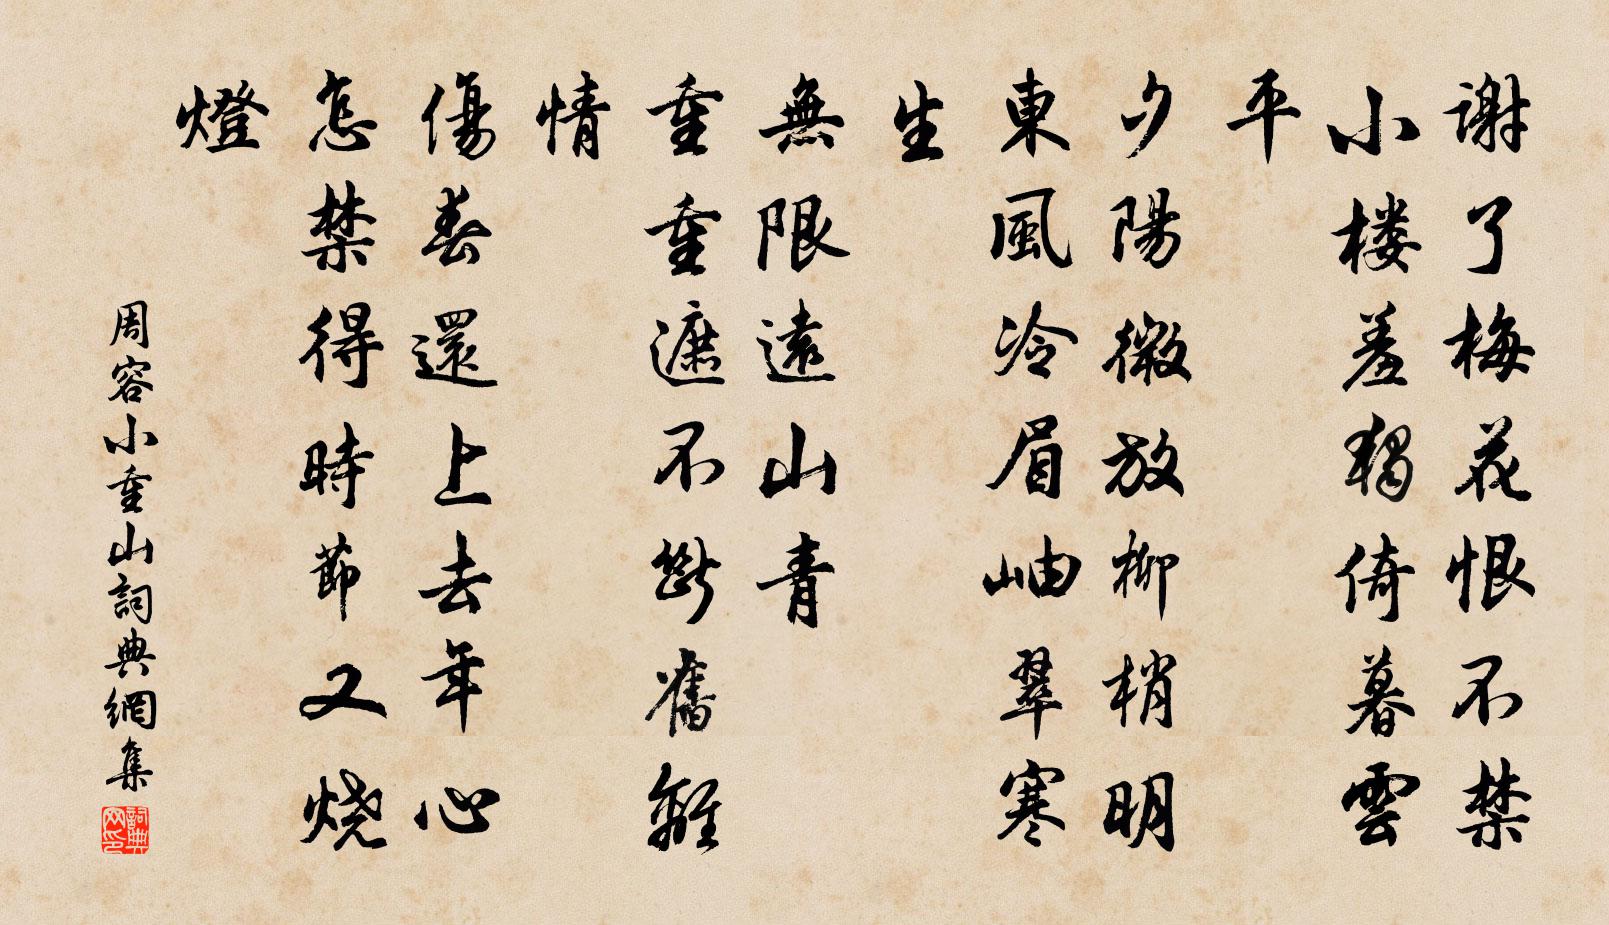 謝了梅花恨不禁
小楼羞獨倚暮雲
平
夕陽微放柳梢明
東風冷眉岫翠寒
生
無限遠山青
重重遮不斷舊離
情
傷春還上去年心
怎禁得時節又燒
燈
周容小重山詞典網集
詞典网印